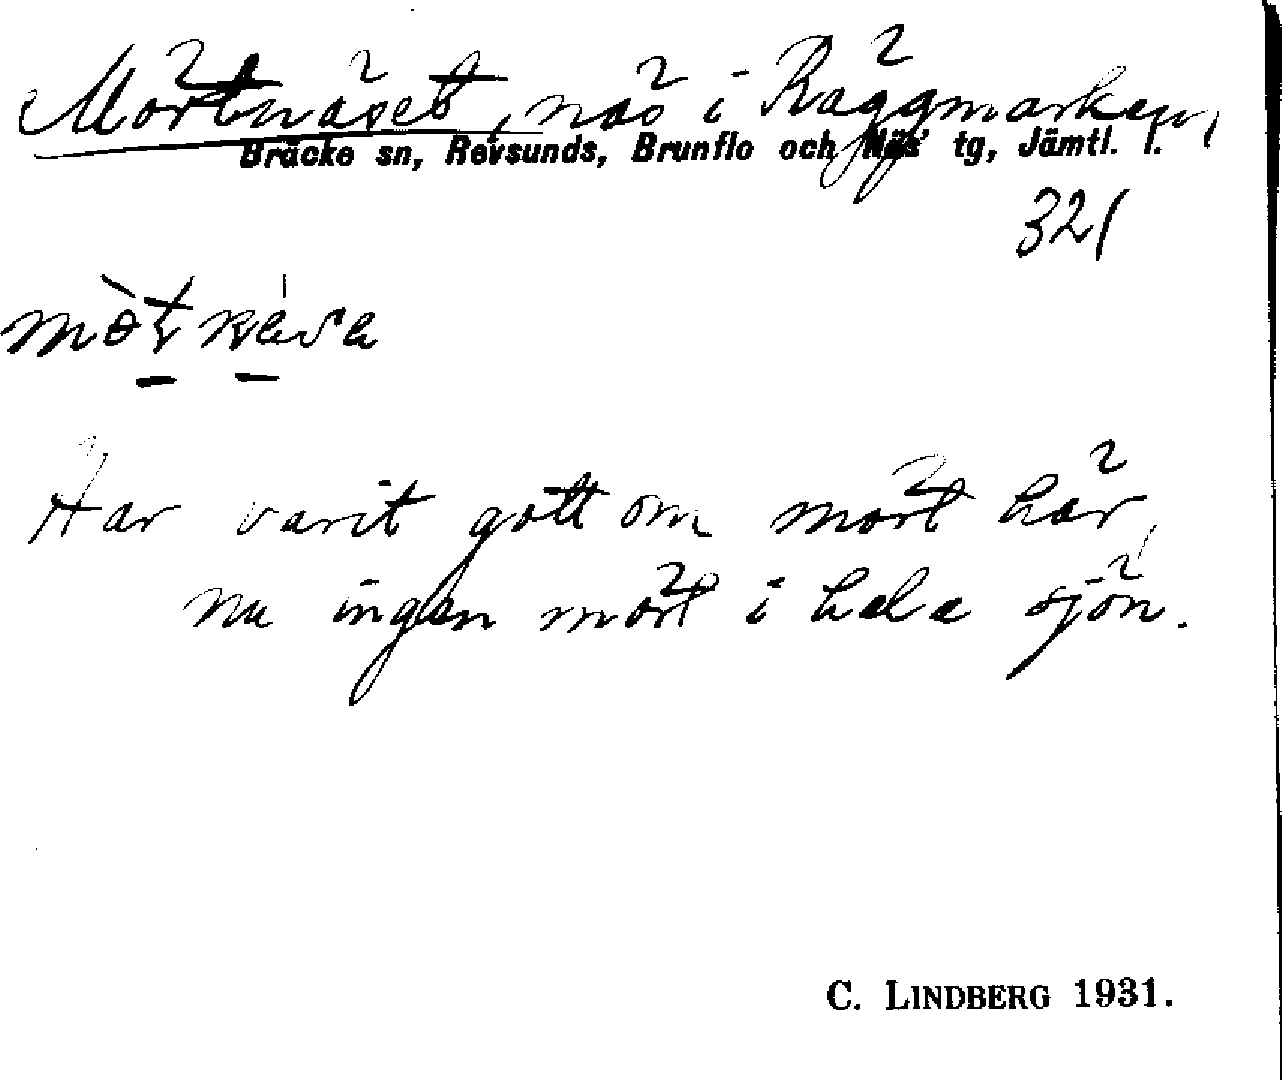 Mörtnäset, näs i Räggmarken,
Bräcke sn, Revsunds, Brunflo och Näs' tg, Jämtl. l.
321
Har varit gott om mört här,
nu ingen mört i hela sjön.
C. LINDBERG 1931.